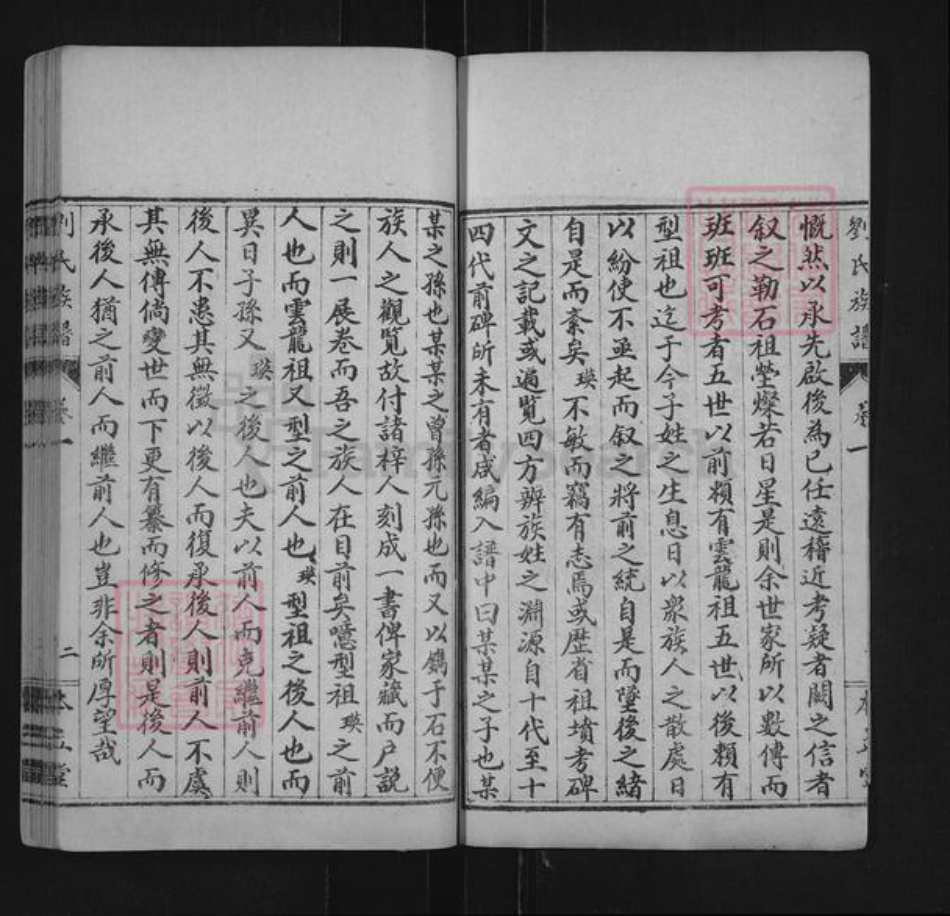 劉氏族譜 卷一
慨然以承先啟後為已任遠稽近考疑者闕之信者
叙之勒石祖塋燦若日星是則余世家所以數傳而
班班可考者五世以前賴有雲龍祖五世以後賴有
型祖也迄于今子姓之生息日以衆族人之散處日
以紛使不亟起而叙之將前之統自是而墜後之緒
自是而紊矣瑛不敏而竊有志焉或歷省祖墳考碑
文之記載或遍覽四方辨族姓之淵源自十代至十
四代前碑所未有者咸編入譜中曰某某之子也某
某之孫也某某之曾孫元孫也而又以鐫于石不便
族人之觀覽故付諸梓人刻成一書俾家藏而戶説
之則一展卷而吾之族人在目前矣噫型祖瑛之前
人也而雲龍祖又型之前人也瑛型祖之後人也而
異日子孫又瑛之後人也夫以前人而克繼前人則
後人不患其無徵以後人而復承後人則前人不虞
其無傳倘變世而下更有纂而修之者則是後人而
承後人猶之前人而繼前人也豈非余所厚望哉
劉氏族譜 卷一 二